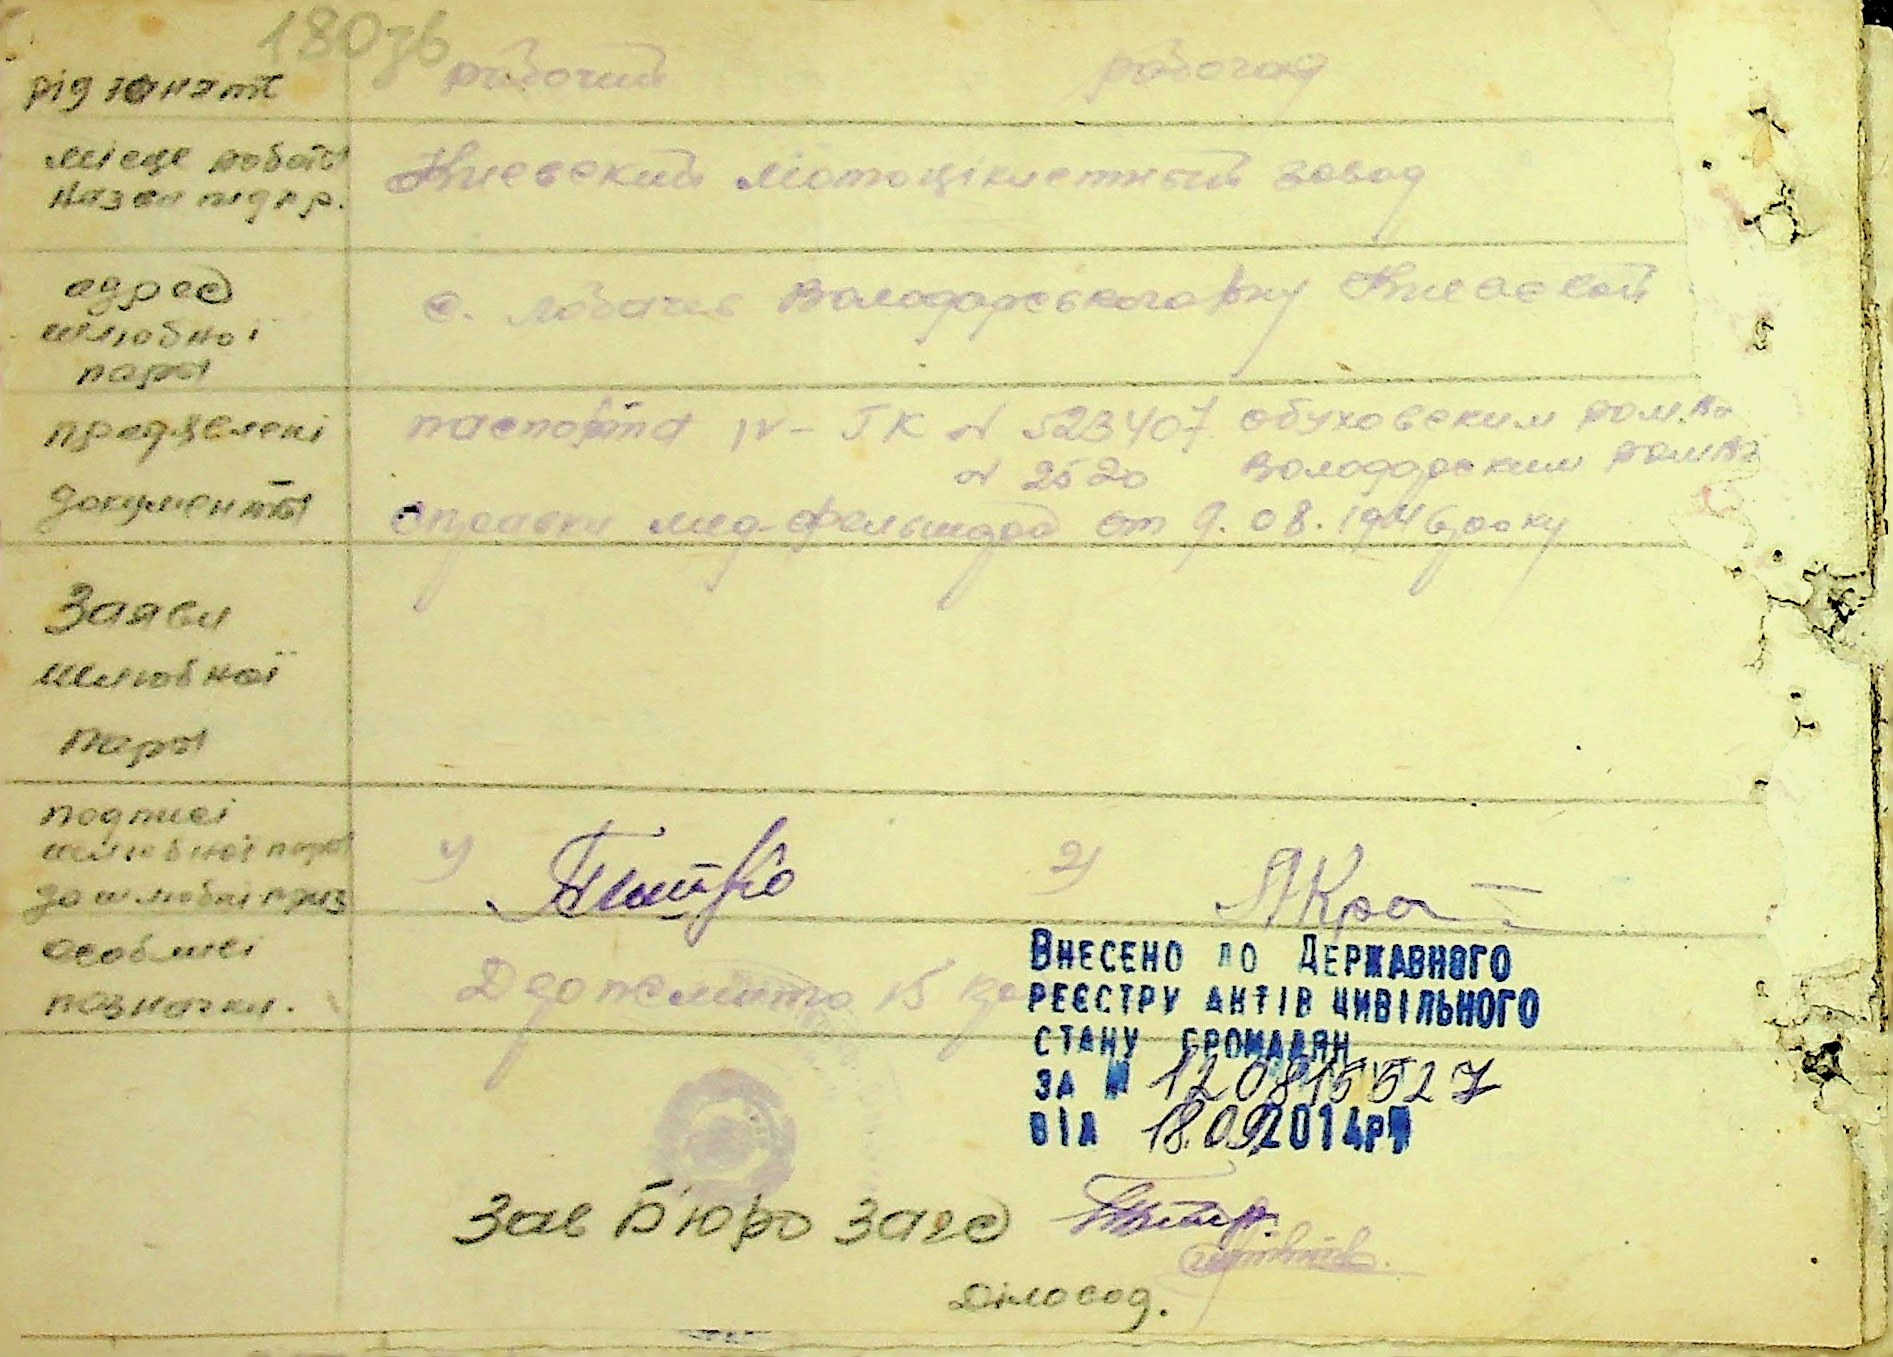 180зв
рід занять рабочий рабочая
місце роботи
назва підпр.
Киевский мотоциклетный завод
адрес
шлюбної
пари
с. Лобачев Володарського р-ну Киевской
предявлені
документи
паспорта IV-ТК № 523407 Обуховским
№ 2520 Володарским
справки мед-фельшера от 9.08.1946 року
Заява
шлюбної
пари
подписі
шлюбної пари
до шлюбні приз
1) 2) ЯКрат
особливі
позначки.
15
Внесено до Державного
реєстру актів цивільного
стану громадян
за № 120815527
від 18.09.2014р
Зав Бюро Загс
Діловод.